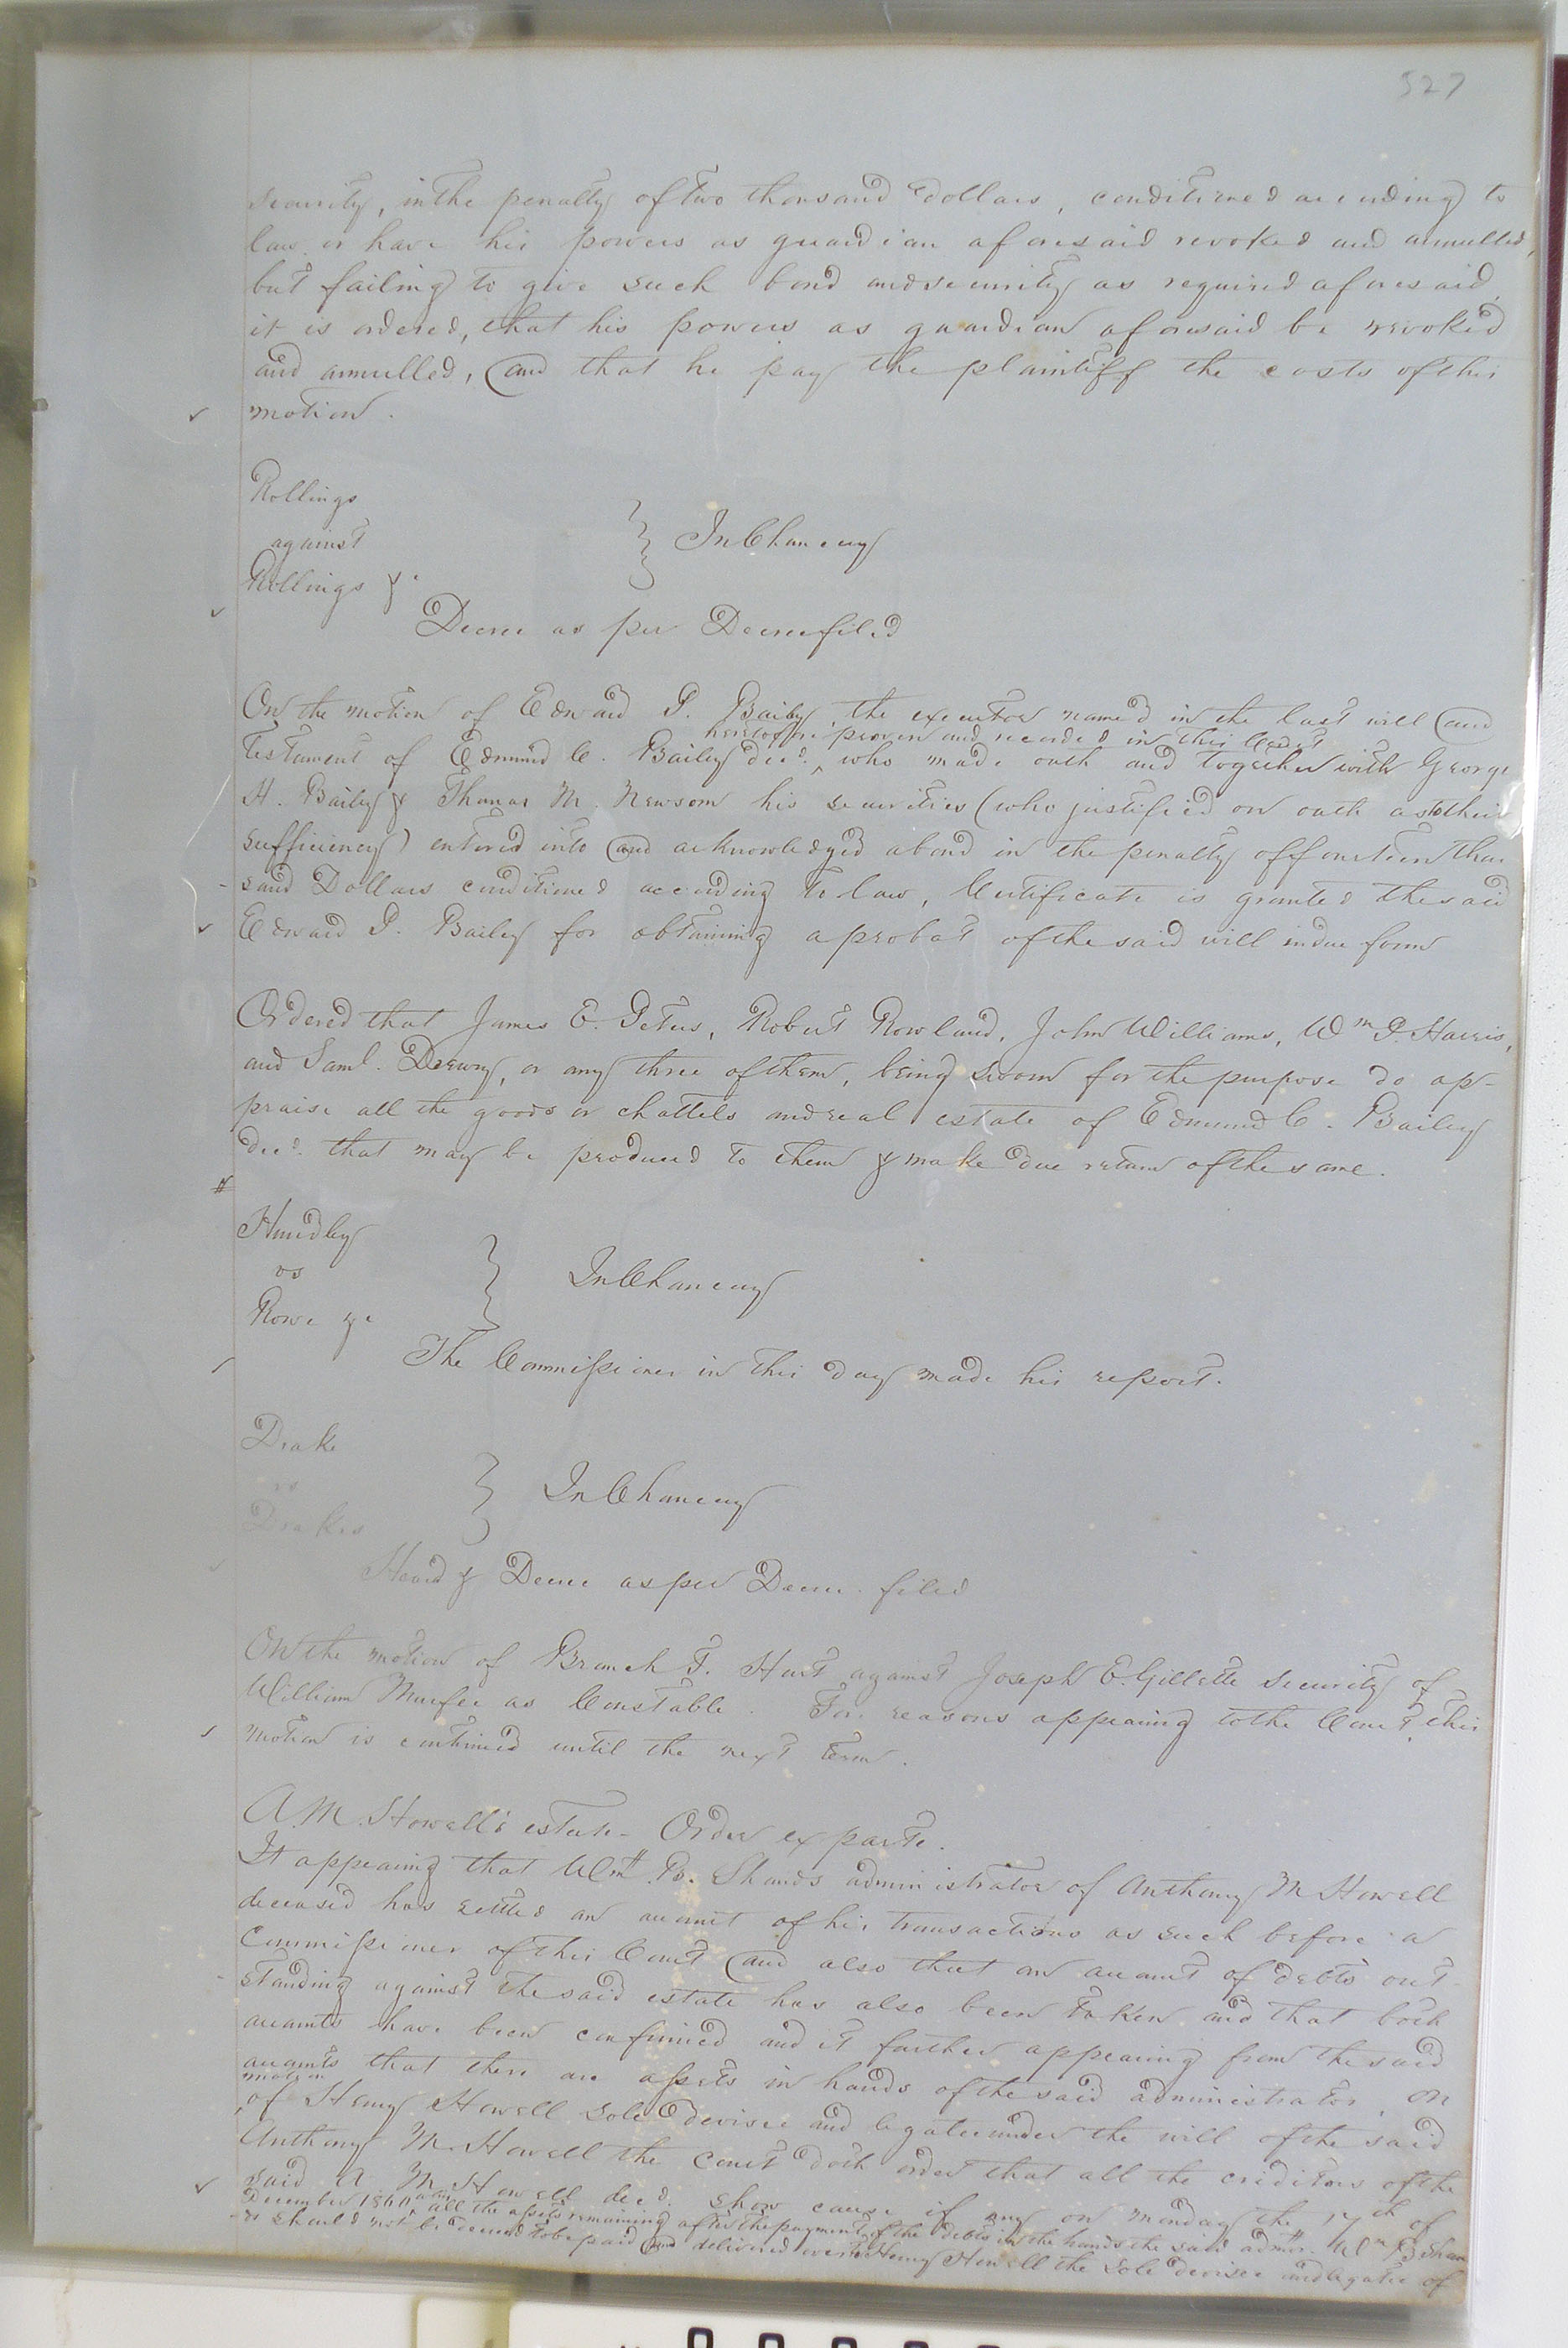 527
security, in the penalty of two thousand dollars, conditioned according to
law or have his powers as guardian aforesaid revoked and annulled,
but failing to give such bond and security as required aforesaid,
it is ordered, that his powers as guardian aforesaid be revoked
and annulled, and that he pay the plaintiff the costs of this
motion.
Rollings
against
Rollings &c
In Chancery
Decree as per Decree filed
On the motion of Edward P. Bailey, the executor named in the last will and
heretofore proven and recorded in this Court
Testament of Edmund C. Bailey decd. who made oath and together with George
H. Bailey & Thomas M. Newsom his securities (who justified on oath as to their
sufficiency) entered into and acknowledged a bond in the penalty of fourteen thou
sand Dollars conditioned according to law, Certificate is granted the said
Edward P. Bailey for obtaining a probat of the said will in due form
Ordered that James E. Peters, Robert Rowland, John Williams, Wm P. Harris,
and Saml. Drewry, or any three of them, being sworn for the purpose do ap-
praise all the goods or chattels and real estate of Edmund C. Bailey
decd. that may be produced to them & make due return of the same.
Hundley
vs
Rowe &c
In Chancery
The Commissioner in this day made his report.
Drake
vs
Drakes
In Chancery
Heard & Decree as per Decree filed
On the motion of Branch T. Hart against Joseph E. Gillette security of
William Murfee as Constable. For reasons appearing to the Court, this
motion is continued until the next term.
A. M. Howell's estate - Order ex parte.
It appearing that Wm. B. Shands administrator of Anthony M Howell
deceased has settled an account of his transactions as such before a
Commissioner of this Court and also that an account of debts out-
standing against the said estate has also been taken and that both
accounts have been confirmed and it further appearing from the said
accounts that there are assets in hands of the said administrator, on
motion
of Henry Howell sole devisee and legatee under the will of the said
Anthony M. Howell the Court doth order that all the creditors of the
said A M Howell decd. show cause if any on monday the 17th of
December 1860 all the assets remaining after the payment of the debts in the hands the said admtr. Wm B Shan
ds should not be decreed to be paid and delivered over to Henry Howell the sole devisee and legatee of